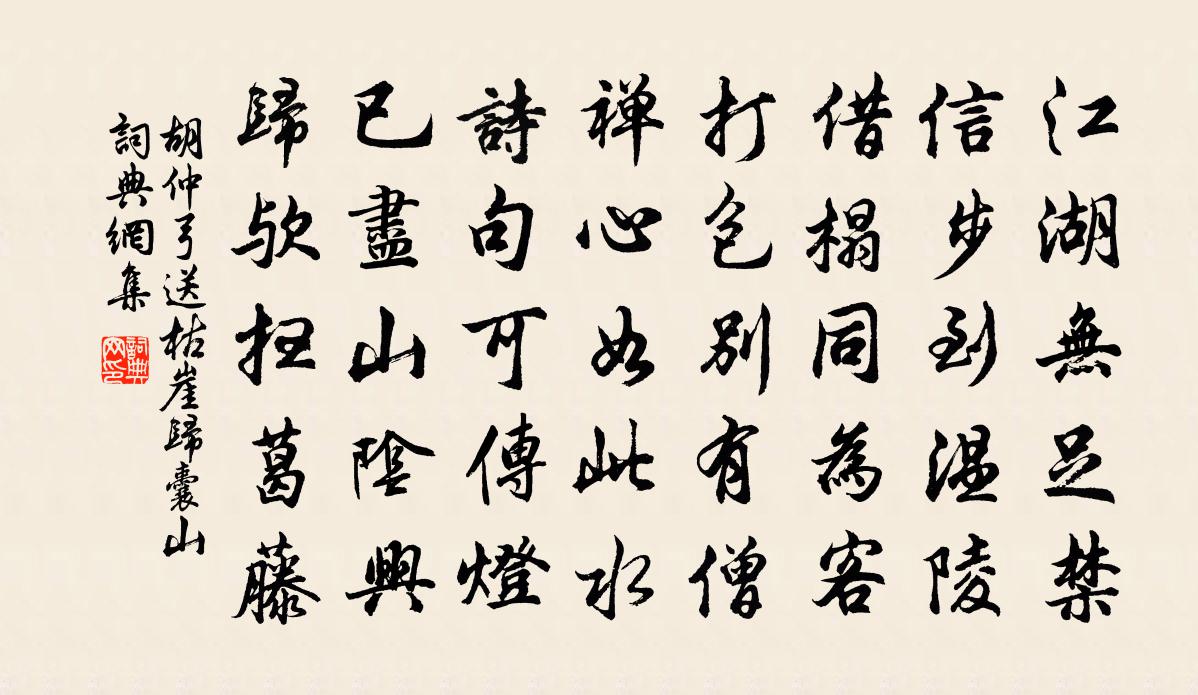 江湖無足禁
信步到温陵
借榻同為客
打包別有僧
禅心如此水
詩句可傳燈
已盡山陰興
歸欤扫葛藤
胡仲弓送枯崖歸囊山
詞典網集
詞典网印